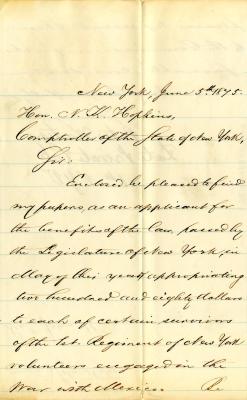 New York, June 5th 1875.
Hon. N. K. Hopkins,
Comptroller of the State of New York,
Sir:
Enclosed be pleased to find
my papers, as an applicant for
the benefits of the law passed by
the Legislature of New York, in
May of this year appropriating
two hundred and eighty dollars
to each of certain survivors
of the 1st. Regiment of New York
volunteers engaged in the
War with Mexico.